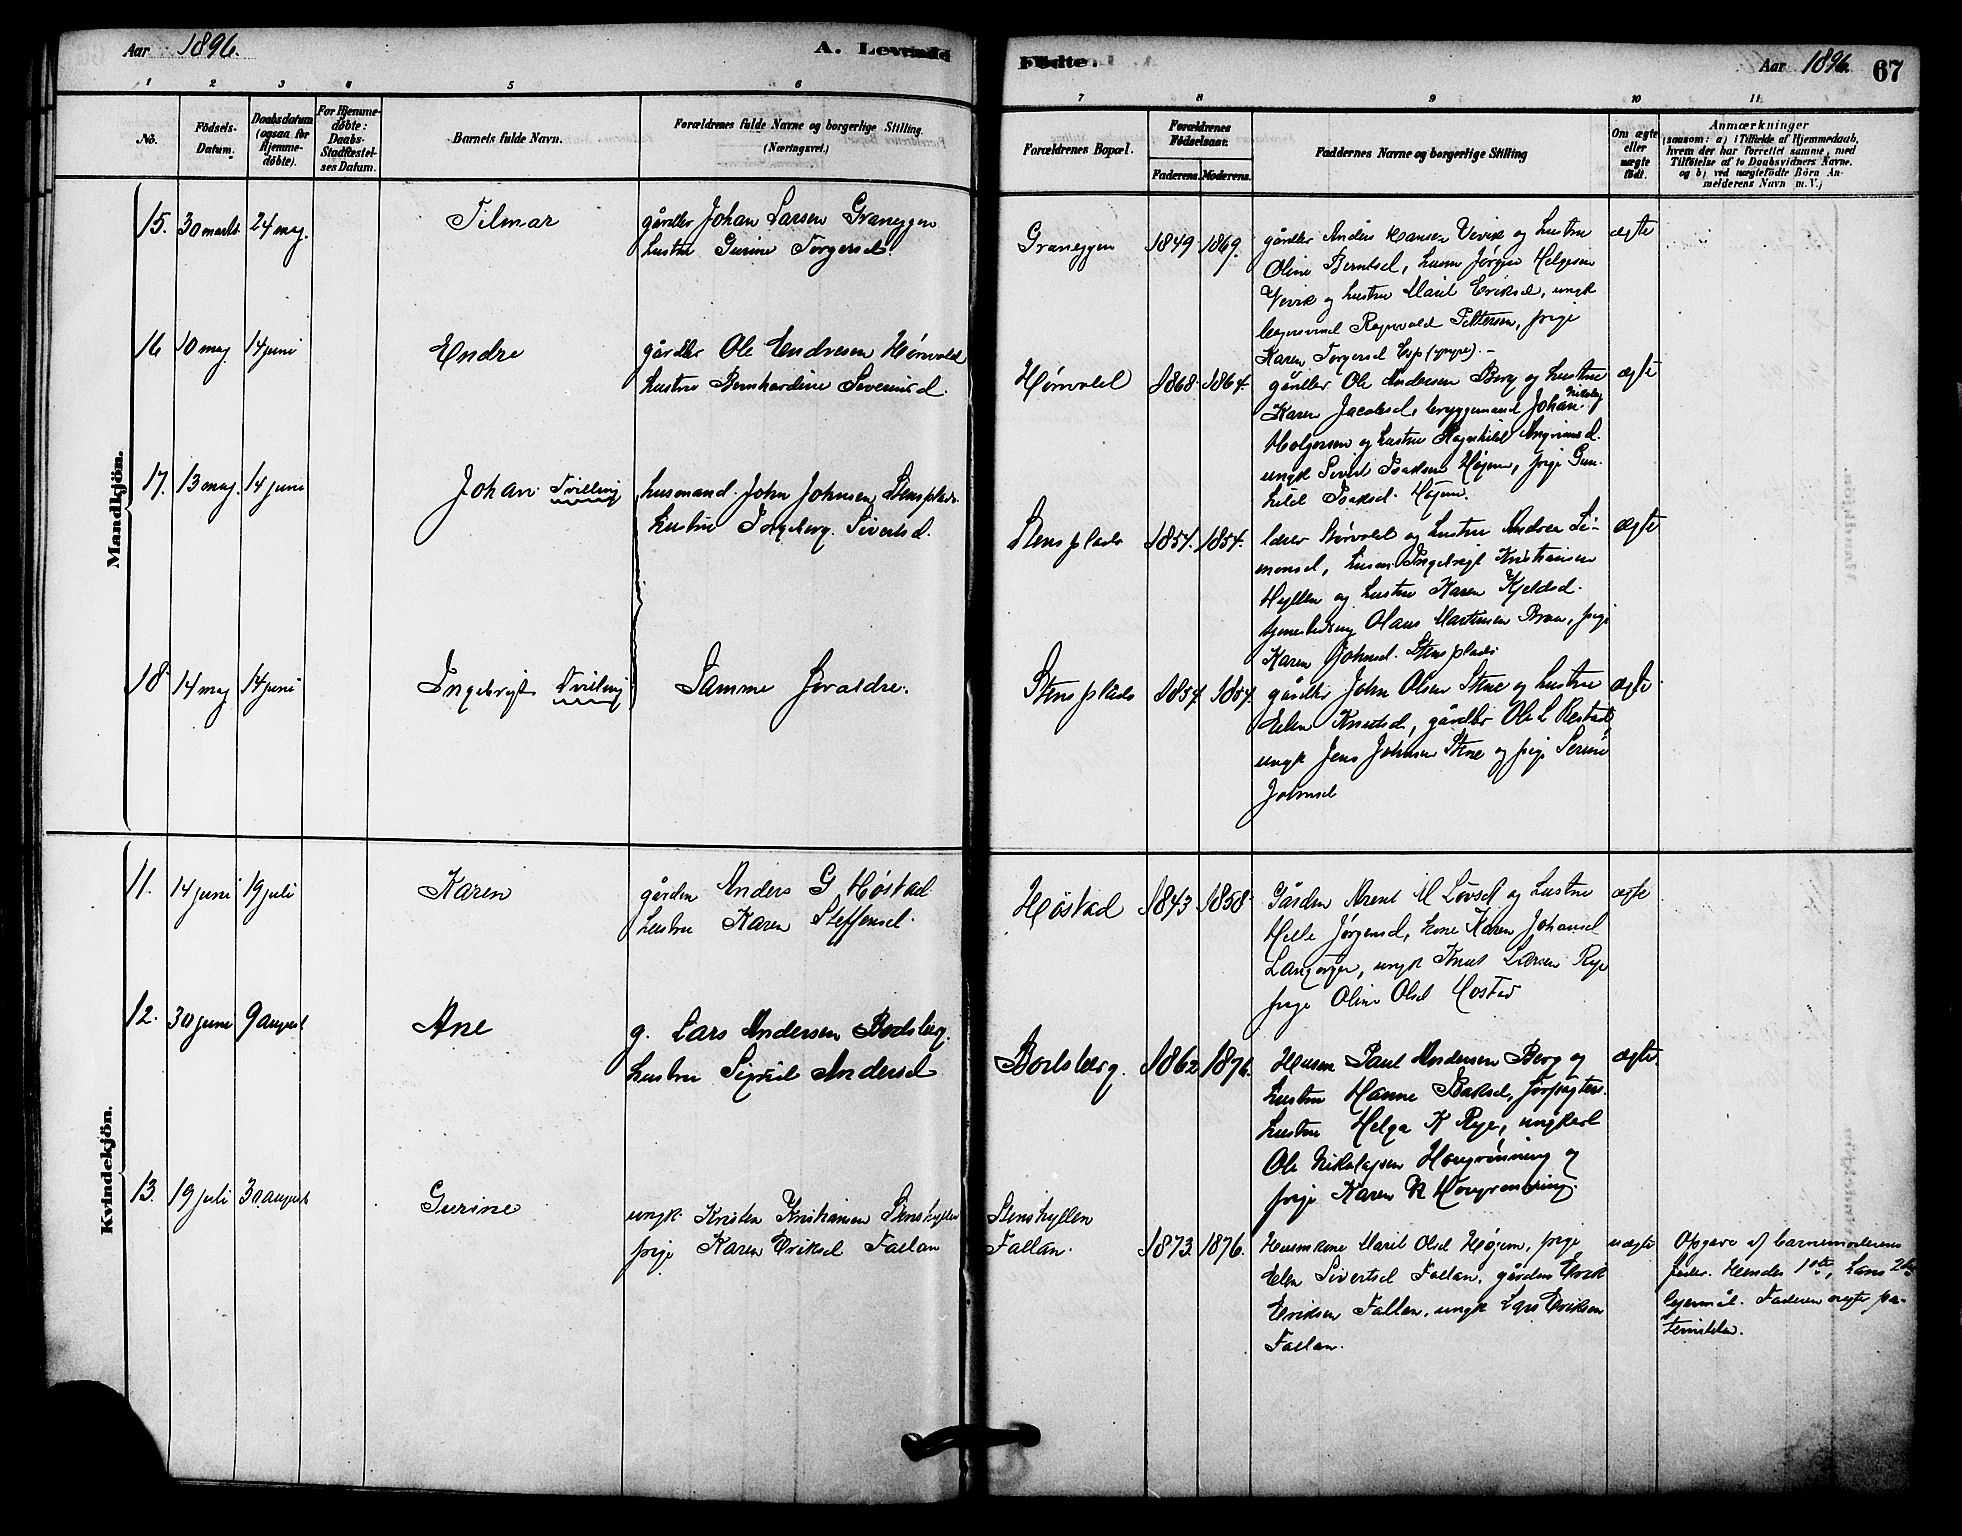 Aar 1896.
A. Levende
1 2 3 4 5 6
No.
Födsels-
Datum.
Daabsdatum
(ogsaa for
Hjemme-
döbte).
For Hjemme-
döbte:
Daabs-
Stadfæstel-
ses Datum.
Barnets fulde Navn.
Forældrenes fulde Navne og borgerlige Stilling.
(Næringsvei.)
Mandkjön.
15. 30 marts 24 maj. Tilmar gårdbr Johan Larsen Graneggen
hustru Gurine Torgersd.
16 10 maj 14 juni Endre gårdbr Ole Endresen Hørvold
hustru Bernhardine Severinsd.
17. 13 maj. 14 juni Johan Tvilling husmand. John Johnsen Stensplads
hustru Ingeborg Sivertsd.
18. 14 maj 14 juni Ingebrygt Tvilling Samme foraldre.
Kvindekjön.
11. 14 juni 19 juli Karen gården Anders G Høstad
hustru Karen Steffensd.
12. 30 juni 9 august Ane g. Lars Andersen Bodsberg.
hustru Sigrid Andersd
13. 19 juli 30 august Gurine ungk. Kristen Kristiansen Stenshyllen
pige Karen Eriksd Fallan
Födte.
Aar 1896. 67
7 8 9 10 11
Forældrenes Bopæl.
Forældrenes
Födselsaar.
Faderens. Moderens.
Faddernes Navne og borgerlige Stilling
Om ægte
eller
uægte
födt.
Anmærkninger
(saasom: a) i Tilfælde af Hjemmedaab,
hvem der har forrettet samme, med
Tilföielse af to Daabsvidners Navne.
og b) ved uægtefödte Börn An-
melderens Navn m. V.)
Graneggen 1849 1869. gårdbr Anders Hansen Vevik og hustru ægte
Oline Berntsd, husm Jørgen Helgesen
Vevik og hustru Marit Eriksd, ungk
Ragnvald Pettersen, pige
Karen Torgersd Esp
Hørvold 1868. 1864. gårdbr Ole Andersen Berg og hustru ægte
Karen Jacobsd, bryggemand Johan Nikolaj
Holgersen og hustru Ragnhild
ungk Sivert Isaksen Højem, pige Gun-
hild Isaksd. Højem.
Stensplads 1854. 1854. lærer Hørvold og hustru Andrea Si- ægte
monsd, husm. Ingebrigt Kristiansen
Hyllen og hustru Karen Kjeldsd.
Olaus Martinsen Braa, pige
Karen Johnsd. Stensplads
Stensplads 1854. 1854. gårdbr John Olsen Stene og hustru ægte
Elen Knutsd, gårdbr Ole L Restad,
ungk Jens Johnsen Stene og pige Serine
Johnsd
Høstad 1843 1858. Gården Arent M Løvset og hustru ægte
Helle Jørgensd, kone Karen Johansd
Langørgen, ungk Knut Larsen Rye
pige Oline Olsd Høstad
Bodsberg. 1862 1876. Husm Paul Andersen Berg og ægte.
hustru Hanne Isaksd, forpagters
hustru Helga K Rye, ungkarl
Ole Nikolajsen Hovgrønning og
pige Karen N Hovgrønning.
Stenshyllen
Fallan. 1873 1876. Huusmkone Marit Olsd Højem, pige uægte
Elen Sivertsd Fallan, gården Erik
Eriksen Fallan, ungk Lars Eriksen
Fallan.
Opgave af barnemoderens
fader. Hendes 1ste, hans 2det
lejermål. Faderen vegter pa-
terniteten.